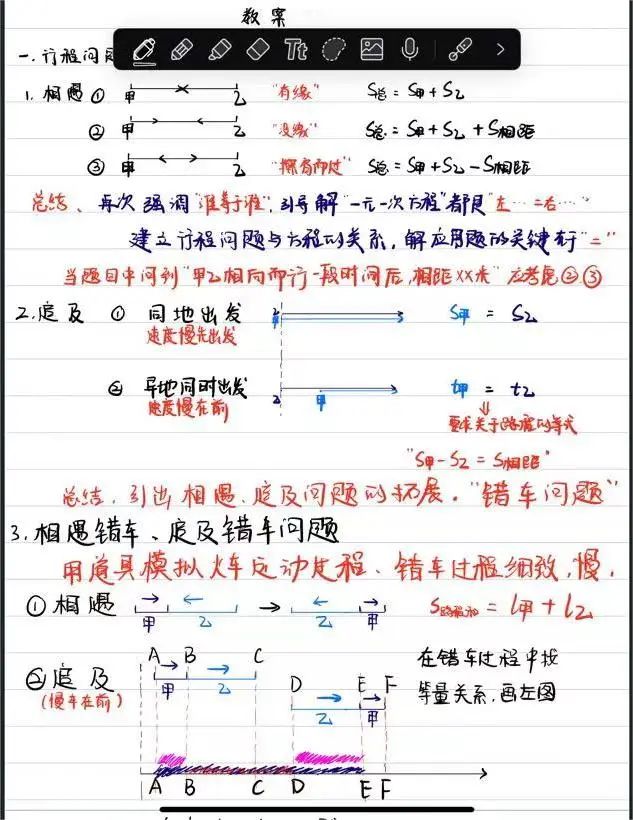 教案
一.行程问题
Tt
1. 相遇 ① 甲 乙 "有缘" S总 = S甲 + S乙
② 甲 乙 "没缘" S总 = S甲 + S乙 + S相距
③ 甲 乙 "擦肩而过" S总 = S甲 + S乙 - S相距
总结、再次强调"谁等于谁",引导解"一元一次方程"都是"左…=右…"
建立行程问题与方程的关系,解应用题的关键有"="
当题目中问到"甲乙相向而行一段时间后,相距××米" 应考虑②③
2.追及 ① 同地出发 乙 甲 S甲 = S乙
速度慢先出发
② 异地同时出发 乙 甲 t甲 = t乙
速度慢在前 要求关于路程的等式
"S甲-S乙 = S相距"
总结.引出相遇、追及问题的拓展."错车问题"
3.相遇错车、追及错车问题
用道具模拟火车运动过程、错车过程细致,慢.
① 相遇 甲 乙 乙 甲 S路程和 = l甲 + l乙
A B C
② 追及 甲 乙 在错车过程中找
(慢车在前) D E F 等量关系.画左图
乙 甲
A B C D E F